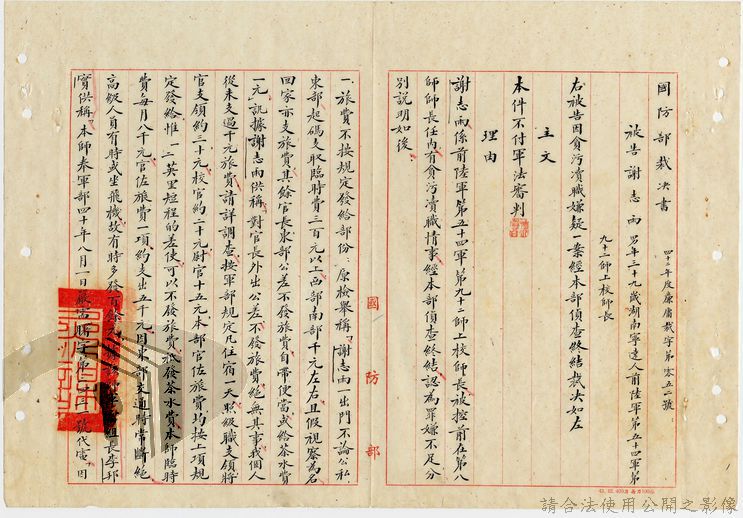 國防部裁決書
四十二年度廉庸裁字第零五二號
被告謝志雨 男年三十九歲湖南寧遠人前陸軍第五十四軍第
九十二師上校師長
右被告因貪污瀆職嫌疑一案經本部偵查終結裁決如左
主文
本件不付軍法審判
理由
謝志雨係前陸軍第五十四軍第九十二師上校師長被控前在第八
師師長任內有貪污瀆職情事經本部偵查終結認為罪嫌不足分
別説明如後：
國防部
一、旅費不按規定發給部份：原檢舉稱「謝志雨出門不論公私
東部起碼支取臨時費三百元以上西部南部千元左右且假視察為名
回家亦支旅費其餘官長東部公差不發旅費自帶便當或給茶水費
一元」訊據謝志雨供稱「對官長外出公差不發旅費絕無其事我個人
從未支過千元旅費請詳調查按軍部規定凡住宿一天照級職支領將
官支領約三十元校官約二十元尉官十五元本部官佐旅費均按上項規
定發給惟一二英里短程的差使可以不發旅費祇發茶水費本師臨時
費每月八千元官佐旅費一項約支出五千元因東部交通時常斷絕
高級人員有時或坐飛機故有時多發百餘元
組長李邦
實供稱「本師奉軍部四十年八月一日
號代電因
43. 02. 400本
請合法使用公開之影像